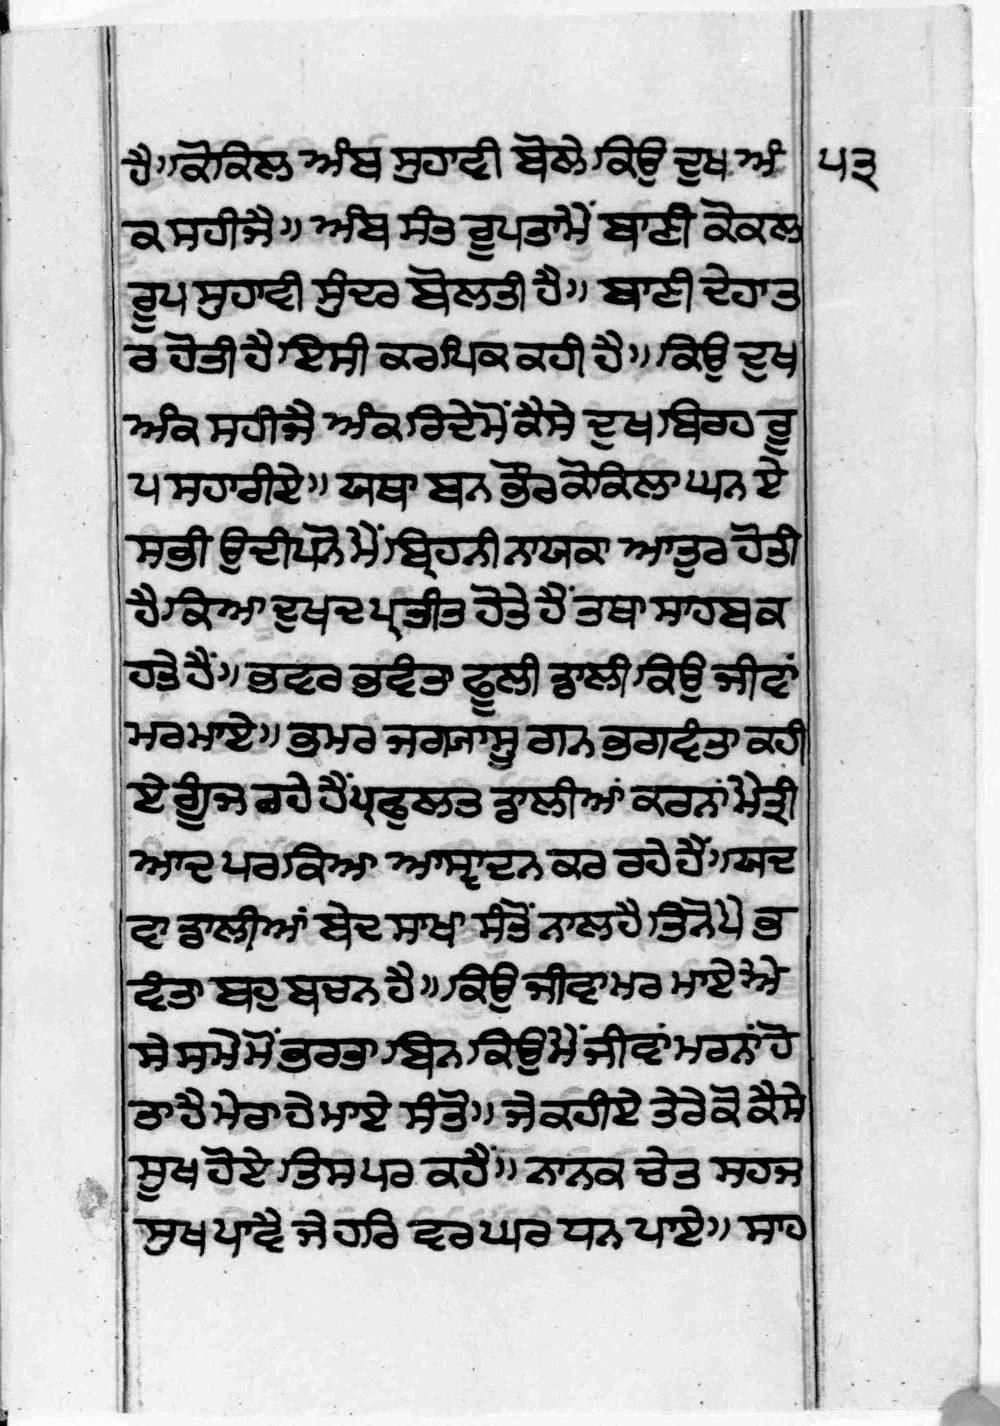 ਹੈ॥ਕੋਕਿਲ ਅੰਬ ਸੁਹਾਵੀ ਬੋਲੇ ਕਿਉ ਦੁਖ ਅੰ ੫੩
ਕ ਸਹੀਜੈ॥ ਅੰਬ ਸੰਤ ਰੂਪ ਤਾਮੇਂ ਬਾਣੀ ਕੋਕਲ
ਰੂਪ ਸੁਹਾਵੀ ਸੁੰਦਰ ਬੋਲਤੀ ਹੈ॥ ਬਾਣੀ ਦੇਹਾਤ
ਰ ਹੋਤੀ ਹੈ ਇਸੀ ਕਰ ਪਿਕ ਕਹੀ ਹੈ॥ ਕਿਉ ਦੁਖ
ਅੰਕ ਸਹੀਜੈ ਅੰਕ ਰਿਦੇਮੋਂ ਕੈਸੇ ਦੁਖ ਬਿਰਹ ਰੂ
ਪ ਸਹਾਰੀਏ॥ ਯਥਾ ਬਨ ਭੌਰ ਕੋਕਿਲਾ ਘਨ ਏ
ਸਭੀ ਉਦੀਪਨੋ ਮੈਂ ਬ੍ਰਿਹਨੀ ਨਾਯਕਾ ਆਤੁਰ ਹੋਤੀ
ਹੈ ਕਿਆ ਦੁਖਦ ਪ੍ਰਤੀਤ ਹੋਤੇ ਹੈਂ ਤਥਾ ਸਾਹਬ ਕ
ਹਤੇ ਹੈਂ॥ ਭਵਰ ਭਵੰਤਾ ਫੂਲੀ ਡਾਲੀ ਕਿਉ ਜੀਵਾਂ
ਮਰ ਮਾਏ॥ ਭਮਰ ਜਗਯਾਸੁ ਗਨ ਭਗਵੰਤਾ ਕਹੀ
ਏ ਗੂੰਜ ਰਹੇ ਹੈਂ ਪ੍ਰਫੁਲਤ ਡਾਲੀਆਂ ਕਰਨਾਂ ਮੈਤ੍ਰੀ
ਆਦ ਪਰ ਕਿਆ ਆਸ੍ਵਾਦਨ ਕਰ ਰਹੇ ਹੈਂ॥ਯਦ
ਵਾ ਡਾਲੀਆਂ ਬੇਦ ਸਾਖਾ ਸੰਤੋਂ ਨਾਲ ਹੈ ਤਿਨੋ ਪੇ ਭ
ਵੰਤਾ ਬਹੁ ਬਚਨ ਹੈ॥ ਕਿਉ ਜੀਵਾ ਮਰ ਮਾਏ ਐ
ਸੇ ਸਮੇ ਮੋਂ ਭਰਤਾ ਬਿਨ ਕਿਉ ਮੈਂ ਜੀਵਾਂ ਮਰਨਾਂ ਹੋ
ਤਾ ਹੈ ਮੇਰਾ ਹੇ ਮਾਏ ਸੰਤੋ॥ ਜੇ ਕਹੀਏ ਤੇਰੇ ਕੋ ਕੈਸੇ
ਸੁਖ ਹੋਏ ਤਿਸ ਪਰ ਕਹੈਂ॥ ਨਾਨਕ ਚੇਤ ਸਹਜ
ਸੁਖ ਪਾਵੈ ਜੇ ਹਰਿ ਵਰ ਘਰ ਧਨ ਪਾਏ॥ ਸਾਹ